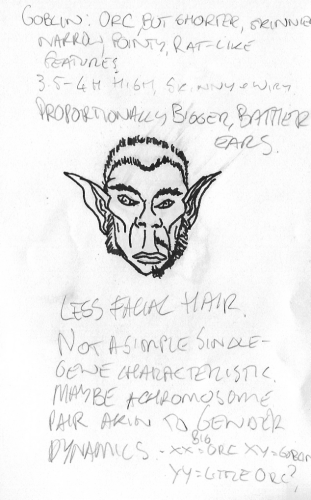 GOBLIN: ORC, BUT SHORTER, SKINNIER
NARROW, POINTY, RAT-LIKE
FEATURES
3.5-4ft HIGH, SKINNY & WIRY.
PROPORTIONALLY BIGGER, BATTIER
EARS.
LESS FACIAL HAIR.
NOT A SIMPLE SINGLE-
GENE CHARACTERISTIC.
MAYBE A CHROMOSOME
PAIR AKIN TO GENDER
DYNAMICS. - XX = BIG ORC XY = GOBLIN
YY = LITTLE ORC?